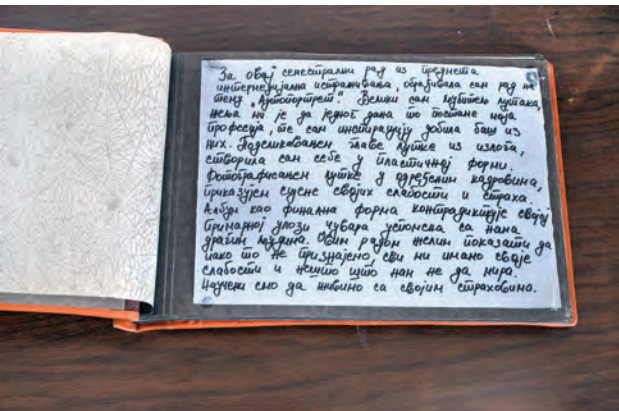 За овај семестрални рад из предмета
интермедијална истраживања, обрађивала сам рад на
тему „Аутопортрет“. Велики сам љубитељ лутака,
жеља ми је да једног дана то постане моја
професија, те сам инспирацију добила баш из
њих. Пресликавањем главе лутке из излога,
створила сам себе у пластичној форми.
Фотографисањем лутке у одређеним кадровима,
приказујем сцене својих слабости и страха.
Албум као финална форма контрадиктује својој
примарној улози чувара успомена са нама
драгим људима. Овим радом желим показати да
иако то не признајемо, сви ми имамо своје
слабости и нешто што нам не да мира.
Научени смо да живимо са својим страховима.